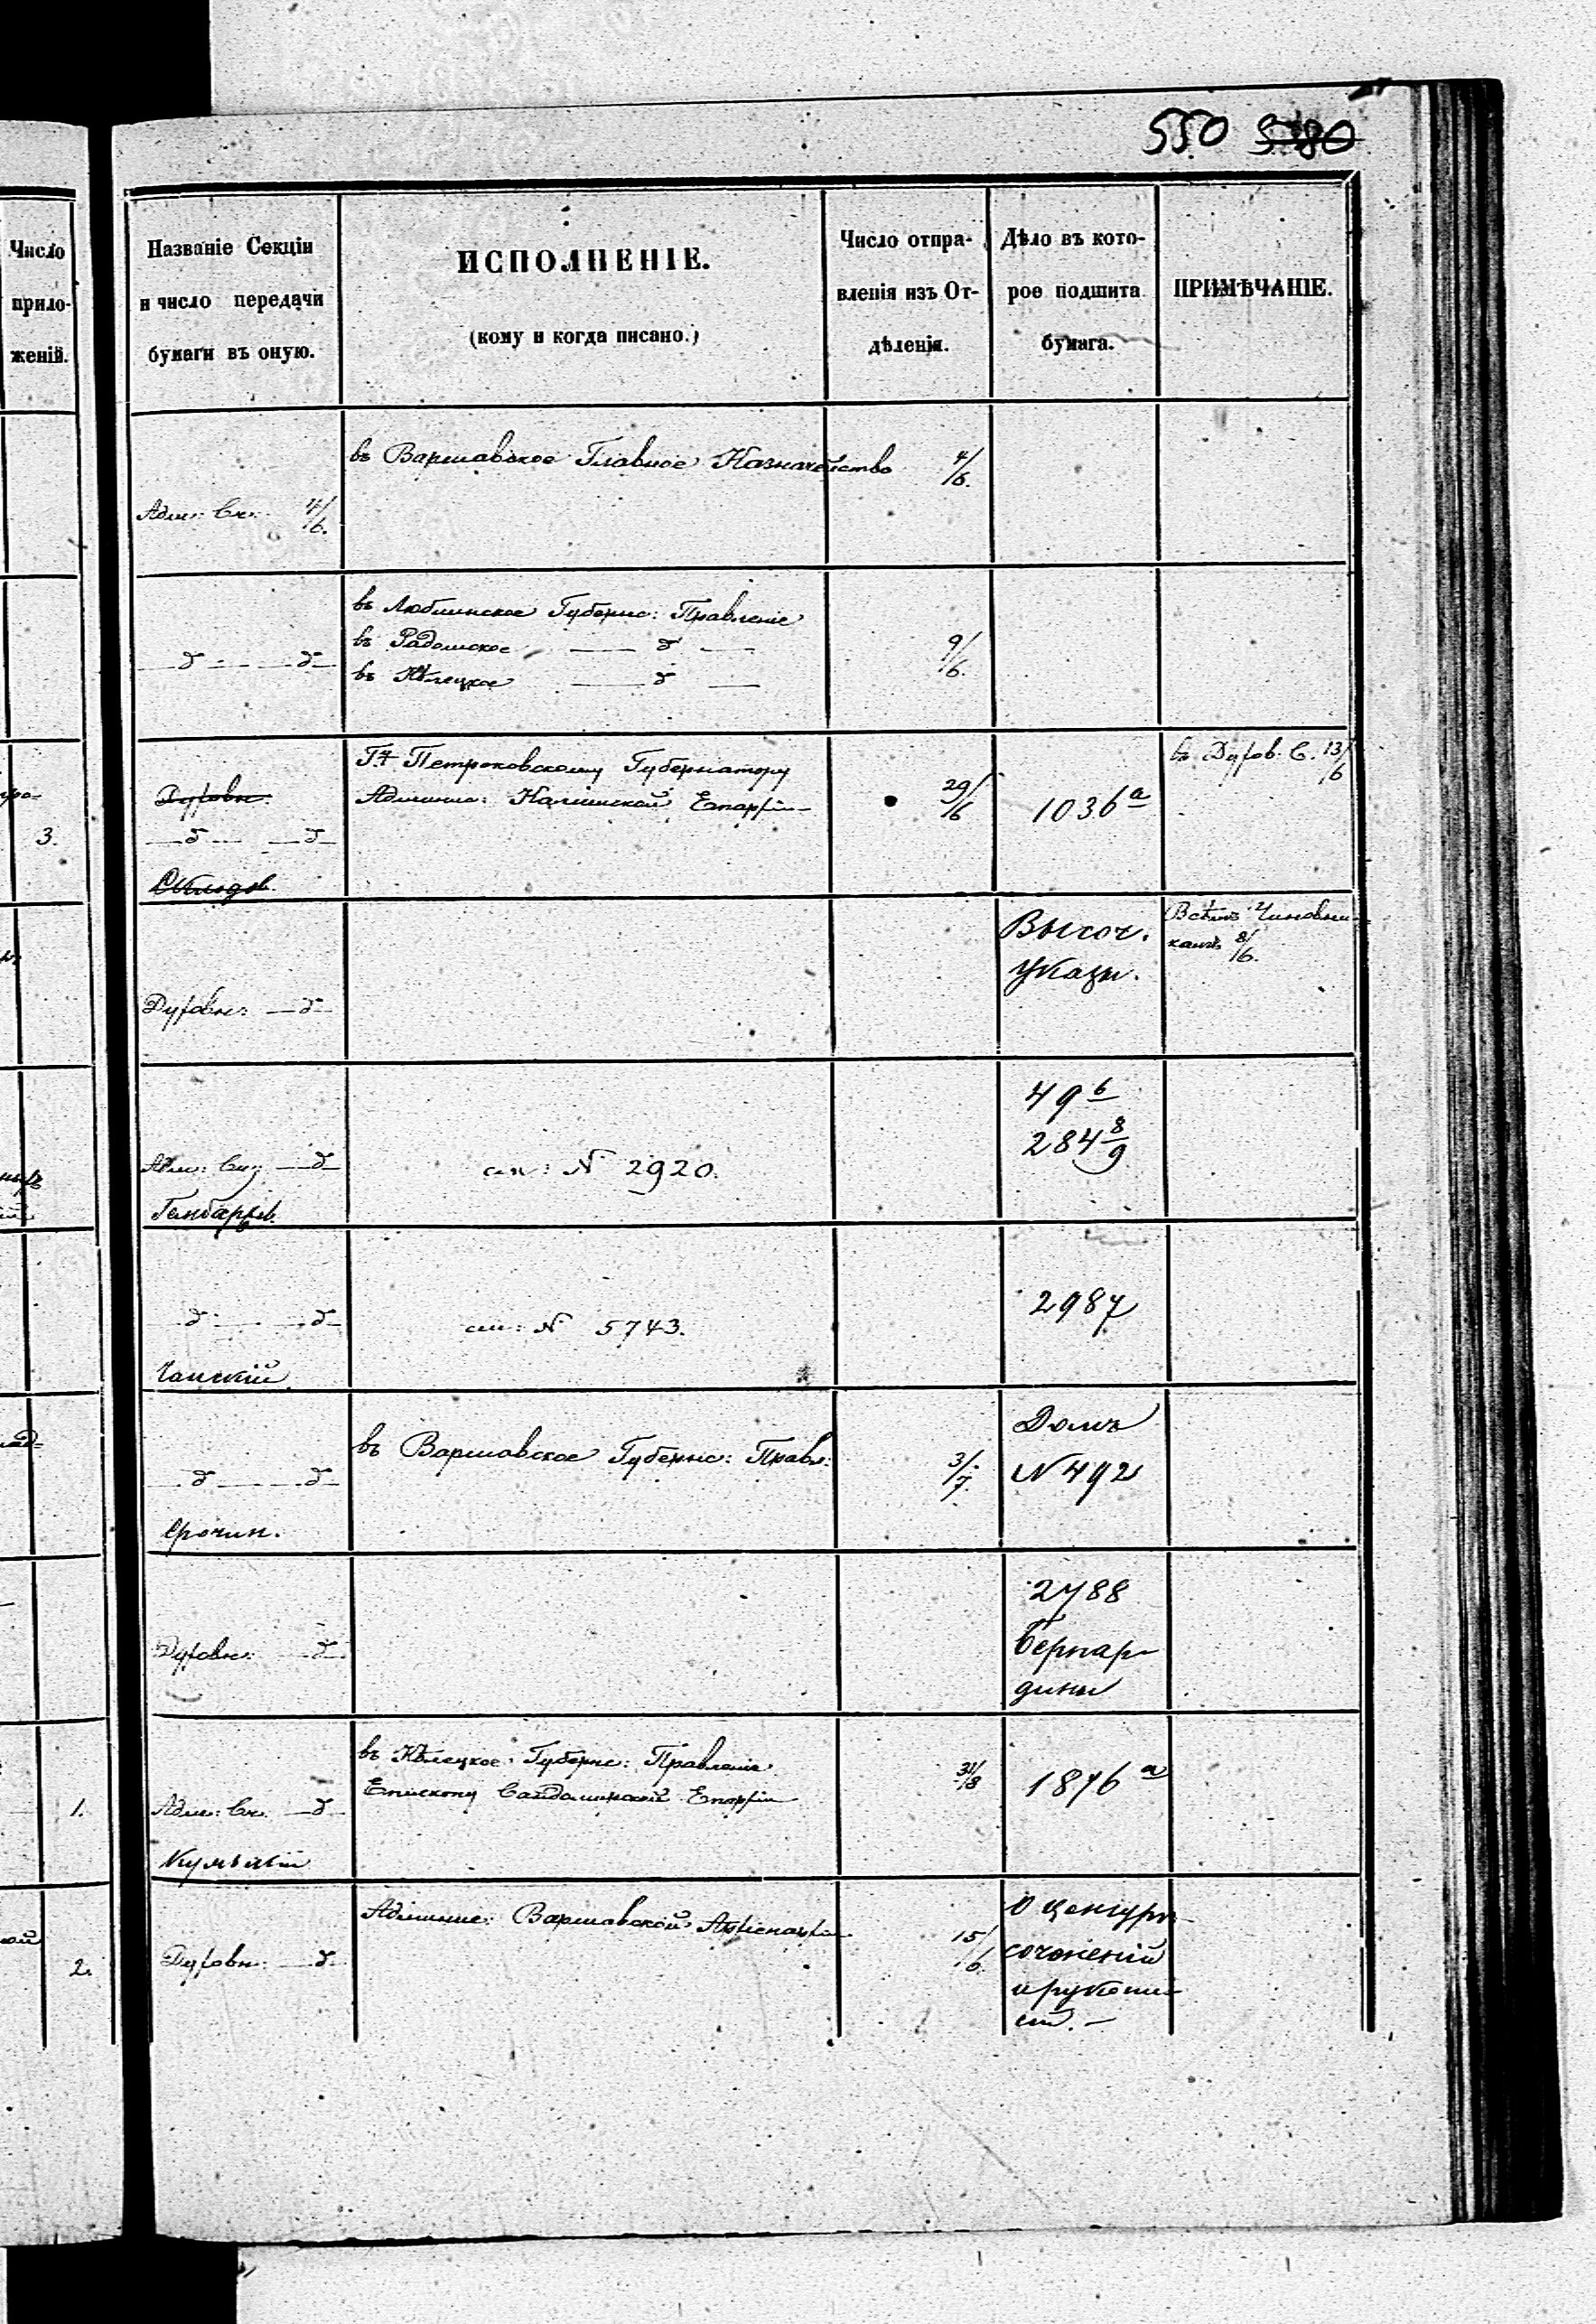 550 580
Число
прило-
женій.
Названіе Секціи
и число передачи
бумаги въ оную.
ИСПОЛНЕНІЕ.
(кому и когда писано.)
Число отпра-
вленія изъ От-
дѣленія.
Дѣло въ кото-
рое подшита
бумага.
ПРИМѢЧАНІЕ.
въ Варшавское Главное Казначейство 4/6.
Адм: Ск: 4/6.
въ Люблинское Губернс: Правленіе
въ Радомское — д —
въ Кѣлецкое — д —
9/6.
— д — — д —
3.
Духовн.
— д — — д —
Петроковскому Губернатору
Админис: Калишской Епархіи
29/6
1036 а
въ Духов. С. 13/6
Духовн: — д —
Высоч.
указы.
Всѣмъ Чиновни-
камъ 8/6.
Адм: — д —
см: № 2920.
49 б
284 8/9
— д — — д —
см: № 5743.
2987
— д — — д —
Срочин.
въ Варшавское Губернс: Правл:
3/7.
Домъ
№ 492
Духовн: — д —
2788
Бернар-
дины
1.
Адм: Ск. — д —
въ Кѣлецкое Губернс: Правленіе
Епископу Сандомирской Епархіи
31/8
1876 а
2.
Духовн: — д —
Админис: Варшавской Архіепархіи
15/6
О цензурѣ
сочиненій
и рукопи-
сей. —